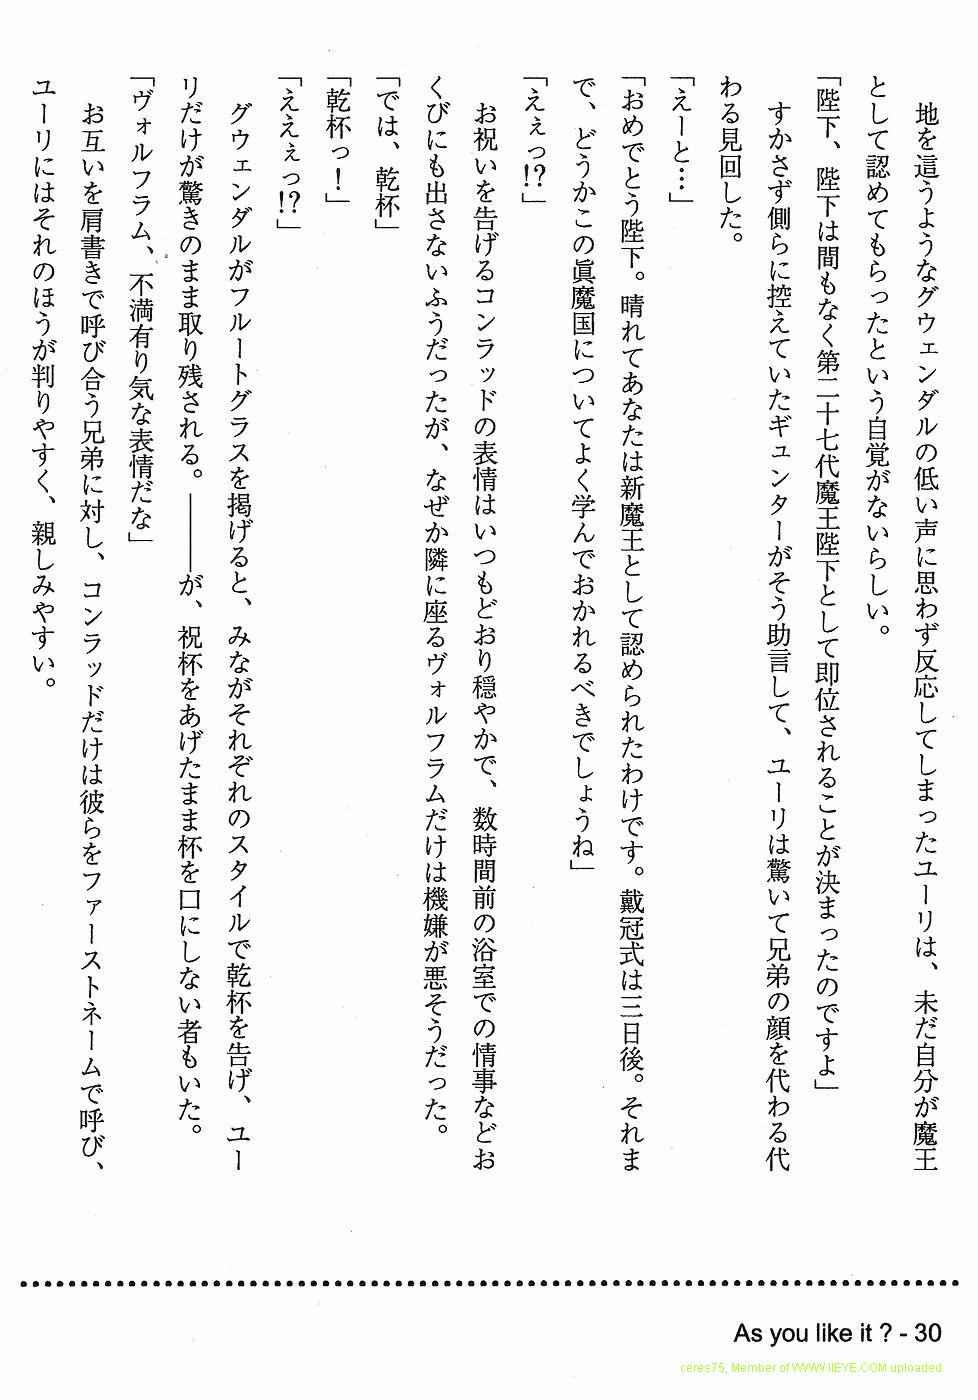 地を這うようなグウェンダルの低い声に思わず反応してしまったユーリは、未だ自分が魔王
として認めてもらったという自覚がないらしい。
「陛下、陛下は間もなく第二十七代魔王陛下として即位されることが決まったのですよ」
すかさず側らに控えていたギュンターがそう助言して、ユーリは驚いて兄弟の顔を代わる代
わる見回した。
「えーと…」
「おめでとう陛下。晴れてあなたは新魔王として認められたわけです。戴冠式は三日後。それま
で、どうかこの眞魔国についてよく学んでおかれるべきでしょうね」
「えぇっ!?」
お祝いを告げるコンラッドの表情はいつもどおり穏やかで、数時間前の浴室での情事などお
くびにも出さないふうだったが、なぜか隣に座るヴォルフラムだけは機嫌が悪そうだった。
「では、乾杯」
「乾杯っ！」
「ええぇっ!?」
グウェンダルがフルートグラスを掲げると、みながそれぞれのスタイルで乾杯を告げ、ユー
リだけが驚きのまま取り残される。――が、祝杯をあげたまま杯を口にしない者もいた。
「ヴォルフラム、不満有り気な表情だな」
お互いを肩書きで呼び合う兄弟に対し、コンラッドだけは彼らをファーストネームで呼び、
ユーリにはそれのほうが判りやすく、親しみやすい。
As you like it ? - 30
ceres75, Member of WWW.IIEYE.COM uploaded